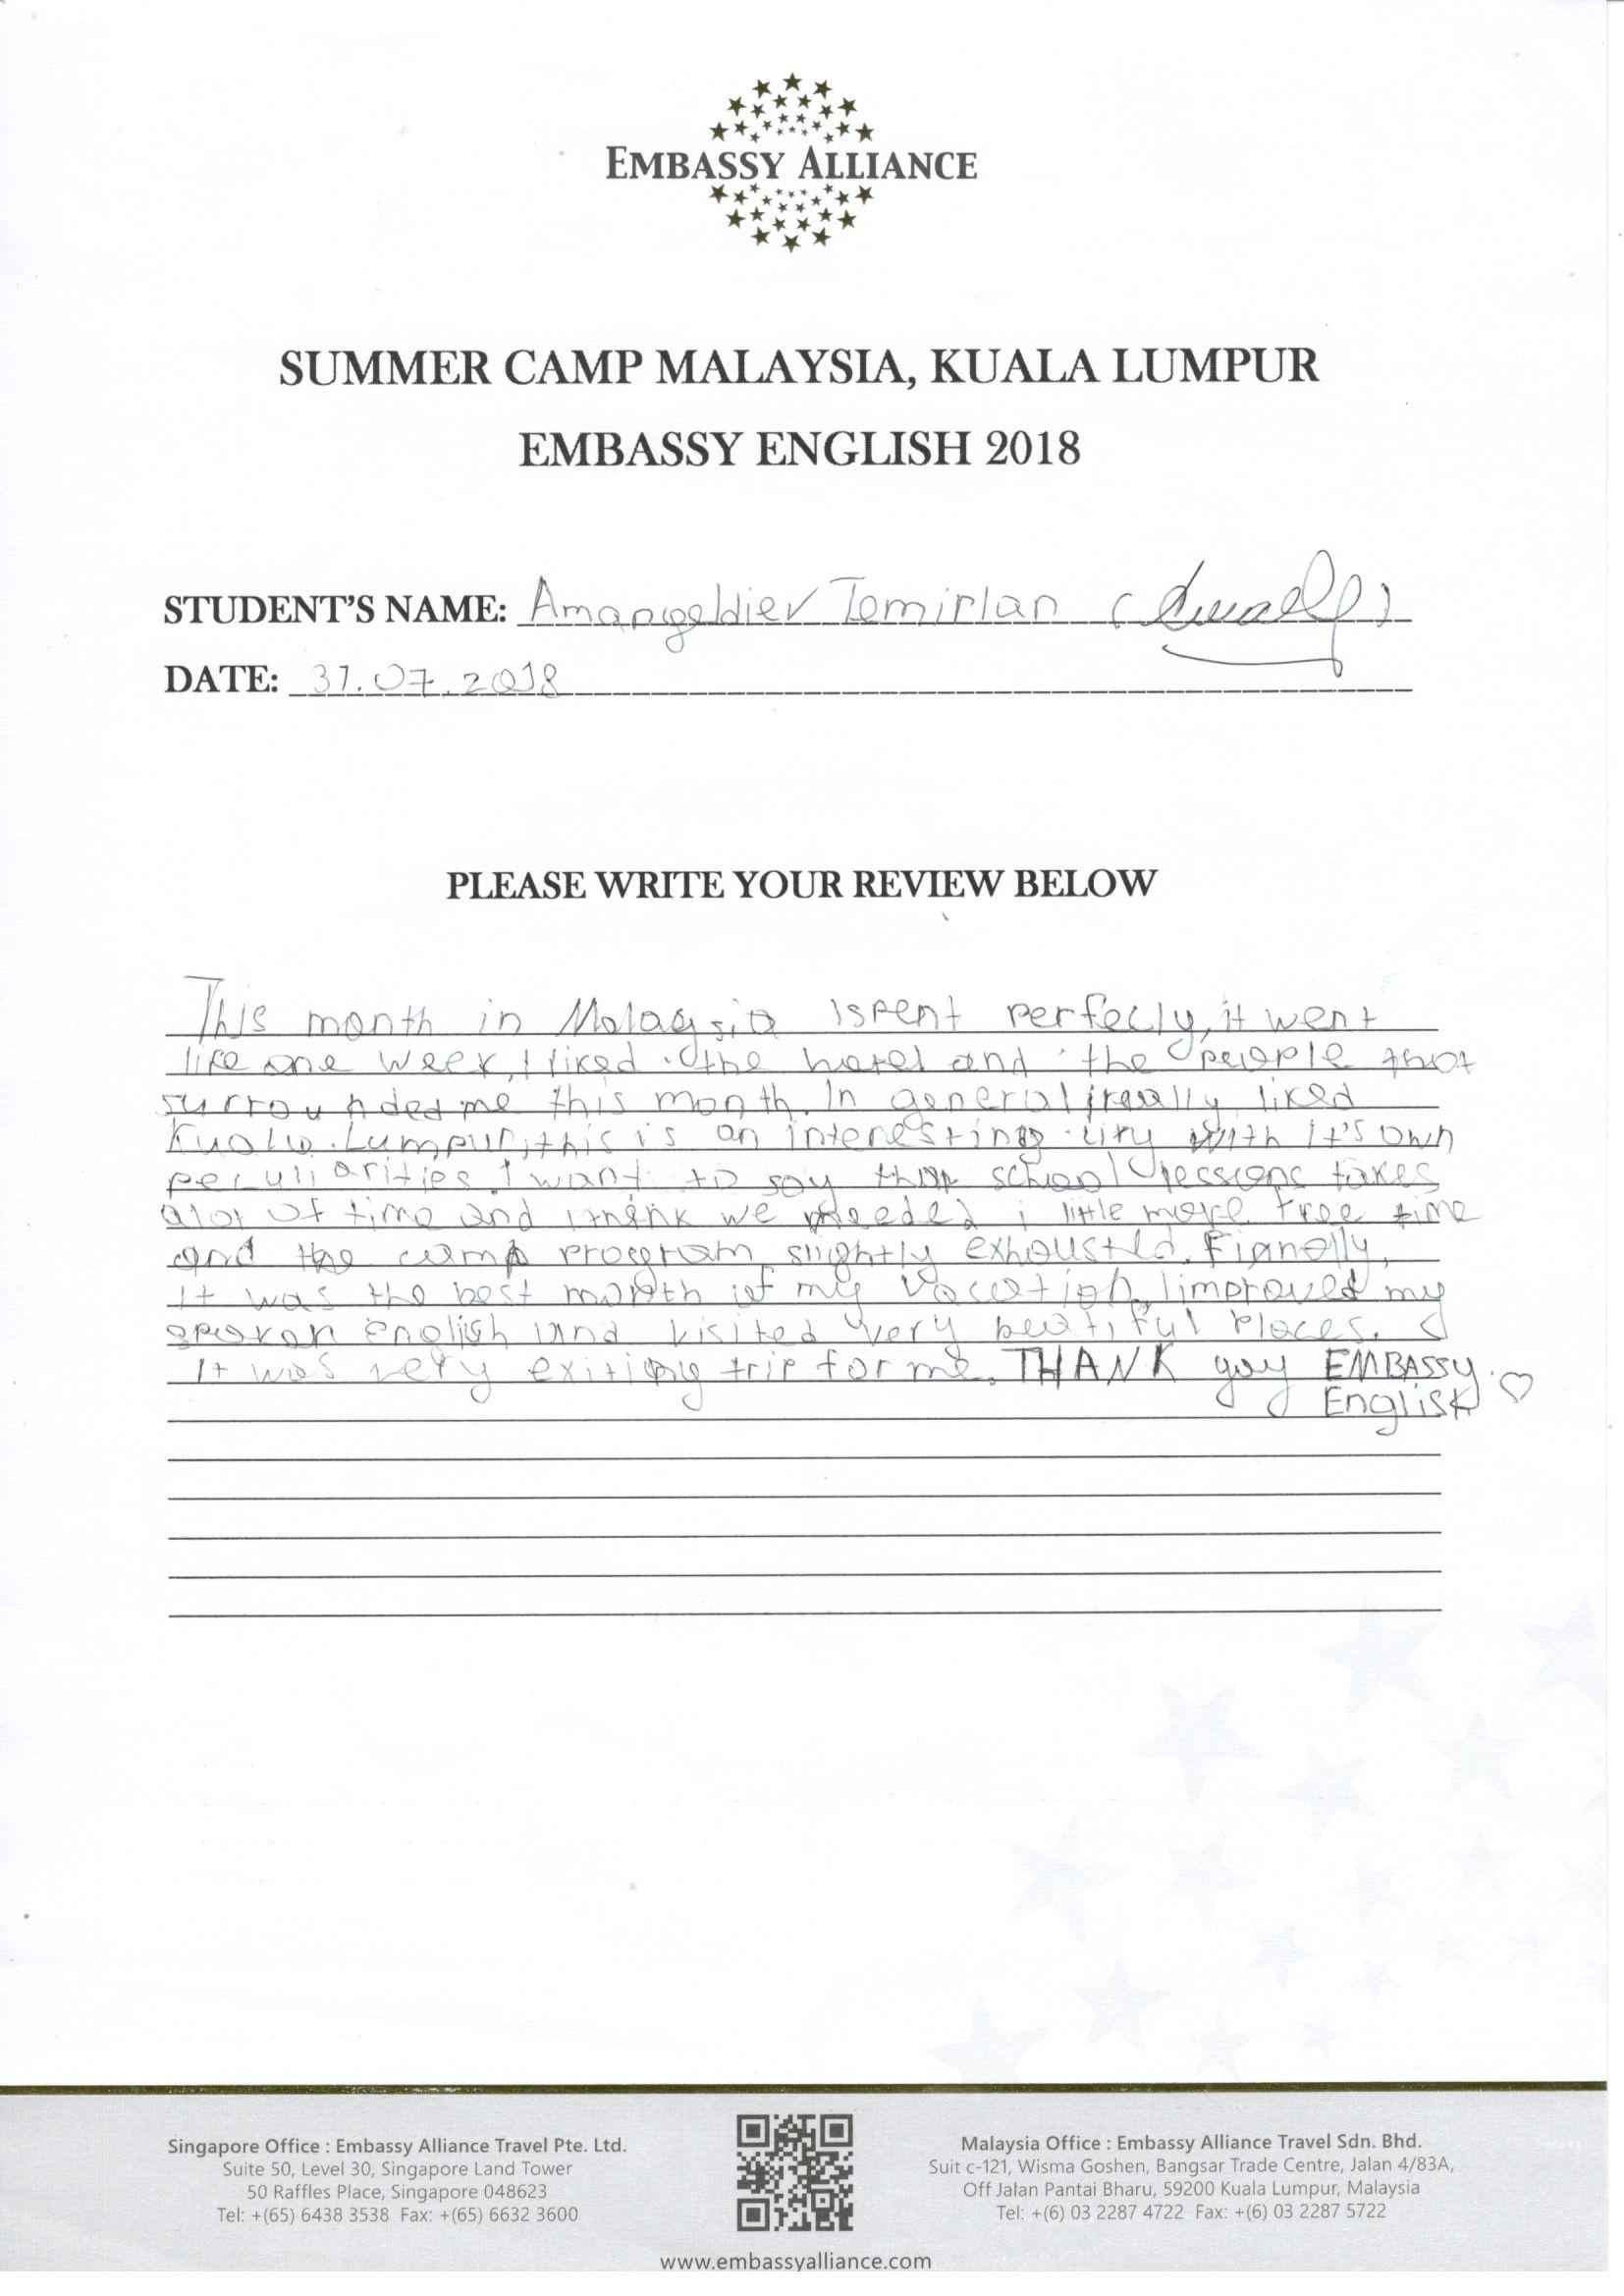 EMBASSY ALLIANCE
SUMMER CAMP MALAYSIA, KUALA LUMPUR
EMBASSY ENGLISH 2018
STUDENT'S NAME: Amangeldiev Temirlan ( )
DATE: 31.07.2018
PLEASE WRITE YOUR REVIEW BELOW
This month in Malaysia I spent perfecly, it went
like one week, I liked the hotel and the people that
surrounded me this month. In general I really liked
Kuala Lumpur, this is an interesting city with it's own
peculiarities. I want to say that school lessons takes
a lot of time and I think we needed a little more free time
and the camp program slightly exhousted. Finnally,
It was the best month of my vacation, I improved my
spoken english and visited very beatiful places.
It was very exiting trip for me. THANK yoy EMBASSY
English ♡
Singapore Office : Embassy Alliance Travel Pte. Ltd.
Suite 50, Level 30, Singapore Land Tower
50 Raffles Place, Singapore 048623
Tel: +(65) 6438 3538 Fax: +(65) 6632 3600
Malaysia Office : Embassy Alliance Travel Sdn. Bhd.
Suit c-121, Wisma Goshen, Bangsar Trade Centre, Jalan 4/83A,
Off Jalan Pantai Bharu, 59200 Kuala Lumpur, Malaysia
Tel: +(6) 03 2287 4722 Fax: +(6) 03 2287 5722
www.embassyalliance.com